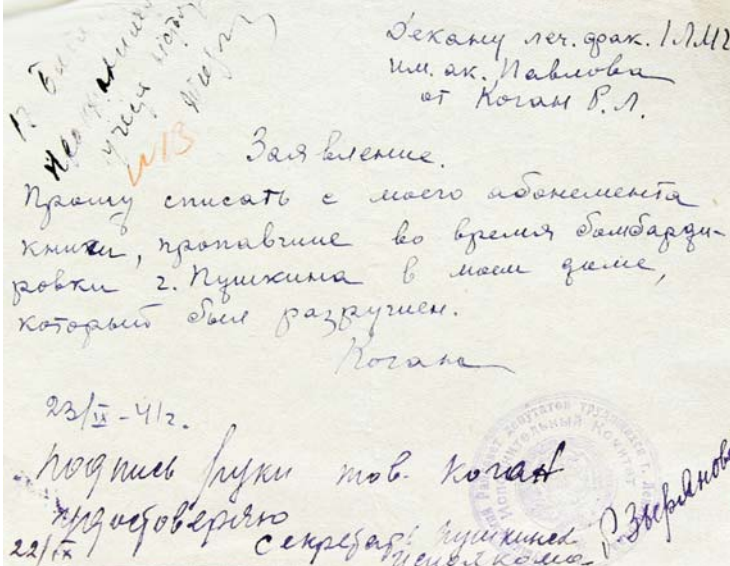 Декану леч. фак. 1 ЛМИ
им. ак. Павлова
от Коган Р. Л.
№13
Заявление.
Прошу списать с моего абонемента
книги, пропавшие во время бомбарди-
ровки г. Пушкина в моем доме,
который был разрушен.
Коган
23/IX-41г.
Подпись руки тов. Коган
удостоверяю
22/IX Секретарь Пушкинск
исполкома
Исполнительный Комитет
депутатов трудящихся г.